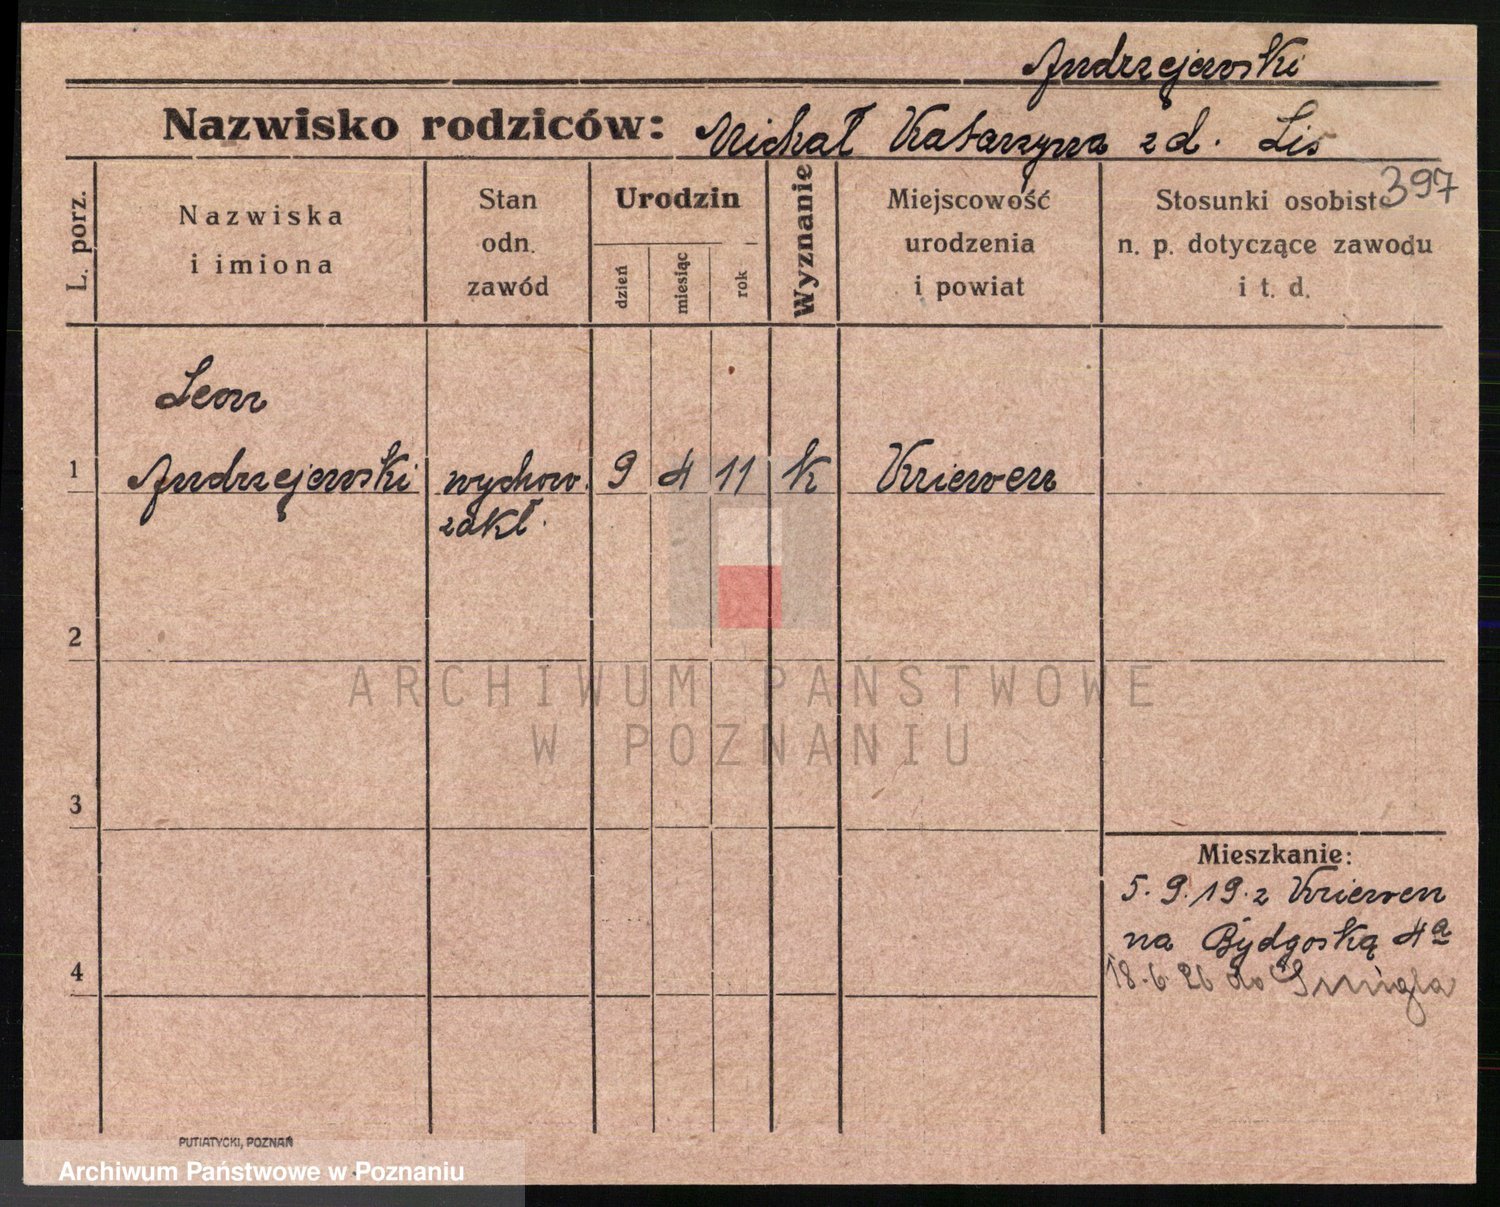 Andrzejewski
Nazwisko rodziców: Michał Katarzyna zd. Lis
397
L. porz.
Nazwiska
i imiona
Stan
odn.
zawód
Urodzin
dzień
miesiąc
rok
Wyznanie
Miejscowość
urodzenia
i powiat
Stosunki osobiste
n. p. dotyczące zawodu
i t. d.
Leon
1 Andrzejewski wychow. 9 4 11 k Kriewen
zakł.
2
ARCHIWUM PAŃSTWOWE
W POZNANIU
3
Mieszkanie:
5.9.19. z Kriewen
na Bydgoską 4a
4
18.6.26 do Śmigla
PUTIATYCKI, POZNAŃ
Archiwum Państwowe w Poznaniu